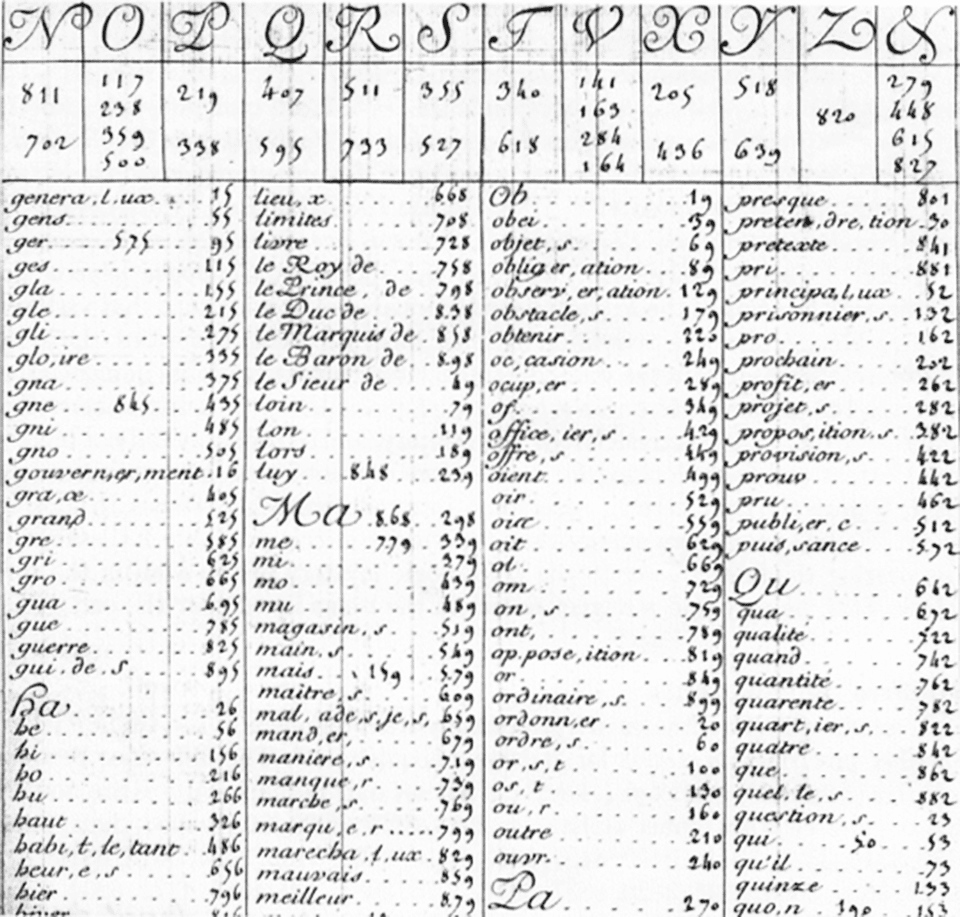 N O P Q R S T V X Y Z &
811 117 219 407 511 355 340 141 205 518 279
238 163 820 448
702 359 338 595 733 527 618 284 436 639 615
500 164 827
genera, l, ux 15
gens 55
ger 575 95
ges 115
gla 155
gle 215
gli 275
glo, ire 335
gna 375
gne 845 435
gni 485
gno 505
gouvern, er, ment 16
gra, ce 405
grand 525
gre 585
gri 625
gro 665
gua 695
gue 785
guerre 825
gui, de s 895
Ha 26
he 56
hi 156
ho 216
hu 266
haut 326
habi, t, le, tant 486
heur, e, s 656
hier 796
lieu, x 668
limites 708
livre 728
le Roy de 758
le Prince, de 798
le Duc de 838
le Marquis de 858
le Baron de 898
le Sieur de 49
loin 79
lon 119
lors 189
luy 848 239
Ma 868 298
me 779 339
mi 379
mo 439
mu 489
magasin, s 519
main, s 549
mais 159 579
maitre, s 609
mal, ade, s, je, s, 659
mand, er, 679
maniere, s 719
manque, r 739
marche, s 769
marqu, e, r 799
marecha, l, ux 829
mauvais 859
meilleur 879
Ob 19
obei 39
objet, s 69
oblig, er, ation 89
observ, er, ation 129
obstacle, s 179
obtenir 220
oc, casion 249
ocup, er 289
of 349
office, ier, s 429
offre, s 449
oient 499
oir 529
oise 559
oit 629
ol 669
om 729
on, s 759
ont, 789
op, pose, ition 819
or 849
ordinaire, s 899
ordonn, er 20
ordre, s 60
or, s, t 100
os, t 130
ou, r 160
outre 210
ouvr 240
Pa 270
presque 801
preten, dre, tion 30
pretexte 841
pri 881
principa, l, ux 52
prisonnier, s 132
pro 162
prochain 202
profit, er 262
projet, s 282
propos, ition, s 382
provision, s 422
prouv 442
pru 462
publi, er, c 512
puis, sance 572
Qu 642
qua 692
qualite 522
quand 742
quantité 762
quarente 782
quart, ier, s 822
quatre 842
que 862
quel, le, s 882
question, s 23
qui 50 53
qu'il 73
quinze 133
quo, n 190 153